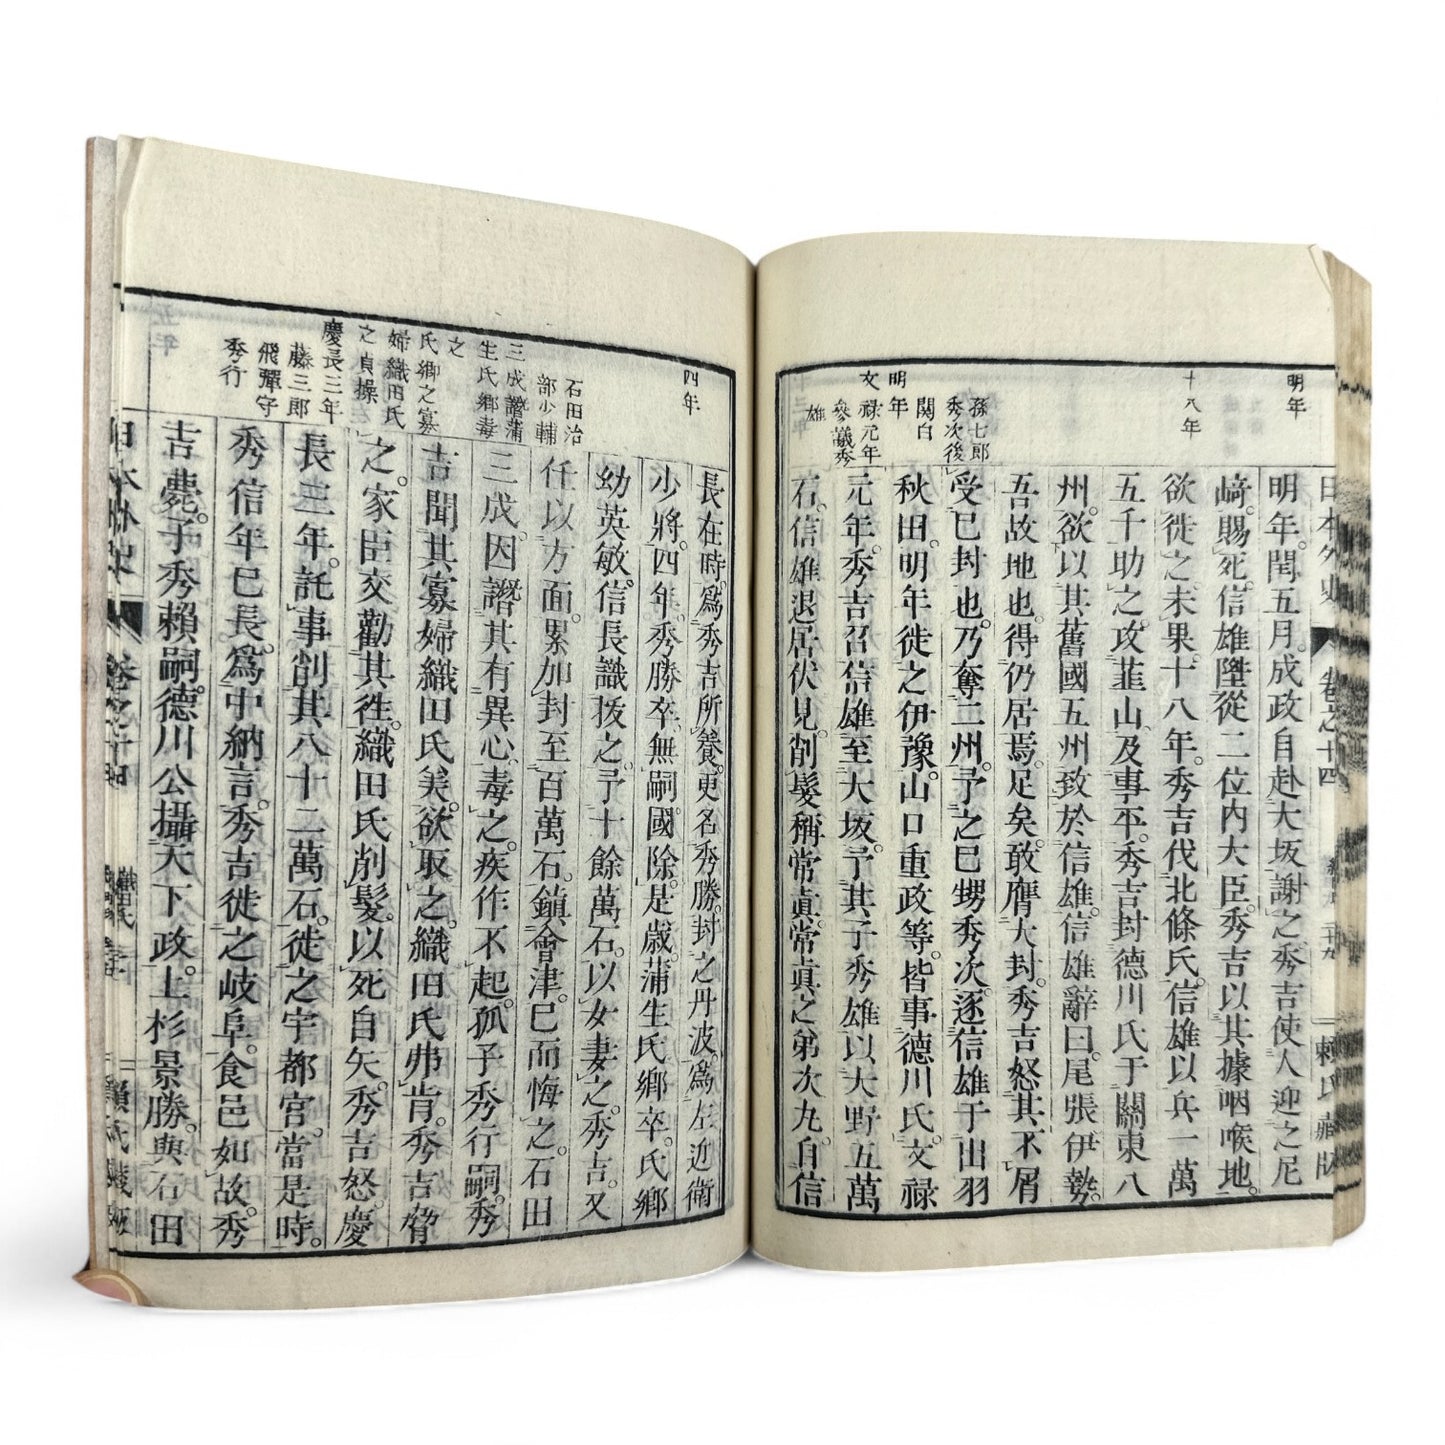 日本外史
卷之十四
賴氏藏版
明年
十八年
孫七郎
秀次後
關白
明年
文祿元年
參議秀
雄
明年閏五月成政自赴大坂謝之秀吉使人迎之尼
﨑賜死信雄陞從二位內大臣秀吉以其據咽喉地
欲徙之未果十八年秀吉伐北條氏信雄以兵一萬
五千助之攻韮山及事平秀吉封德川氏于關東八
州欲以其舊國五州致於信雄信雄辭曰尾張伊勢
吾故地也得仍居焉足矣敢膺大封秀吉怒其不屑
受己封也乃奪二州予之己甥秀次逐信雄于出羽
秋田明年徙之伊豫山口重政等皆事德川氏文祿
元年秀吉召信雄至大坂予其子秀雄以大野五萬
石信雄退居伏見削髮稱常眞常眞之弟次丸自信
四年
石田治
部少輔
三成譖蒲
生氏鄉毒
之
氏鄉之寡
婦織田氏
之貞操
慶長三年
藤三郎
飛彈守
秀行
長在時爲秀吉所養更名秀勝封之丹波爲左近衛
少將四年秀勝卒無嗣國除是歲蒲生氏鄉卒氏鄉
幼英敏信長識拔之予十餘萬石以女妻之秀吉又
任以方面累加封至百萬石鎭會津已而悔之石田
三成因譖其有異心毒之疾作不起孤子秀行嗣秀
吉聞其寡婦織田氏美欲取之織田氏弗肯秀吉脅
之家臣交勸其徃織田氏削髮以死自矢秀吉怒慶
長三年託事削其八十二萬石徙之宇都宮當是時
秀信年已長爲中納言秀吉徙之岐阜食邑如故秀
吉薨子秀賴嗣德川公攝天下政上杉景勝與石田
日本外史
卷之十四
織田氏
賴氏藏版